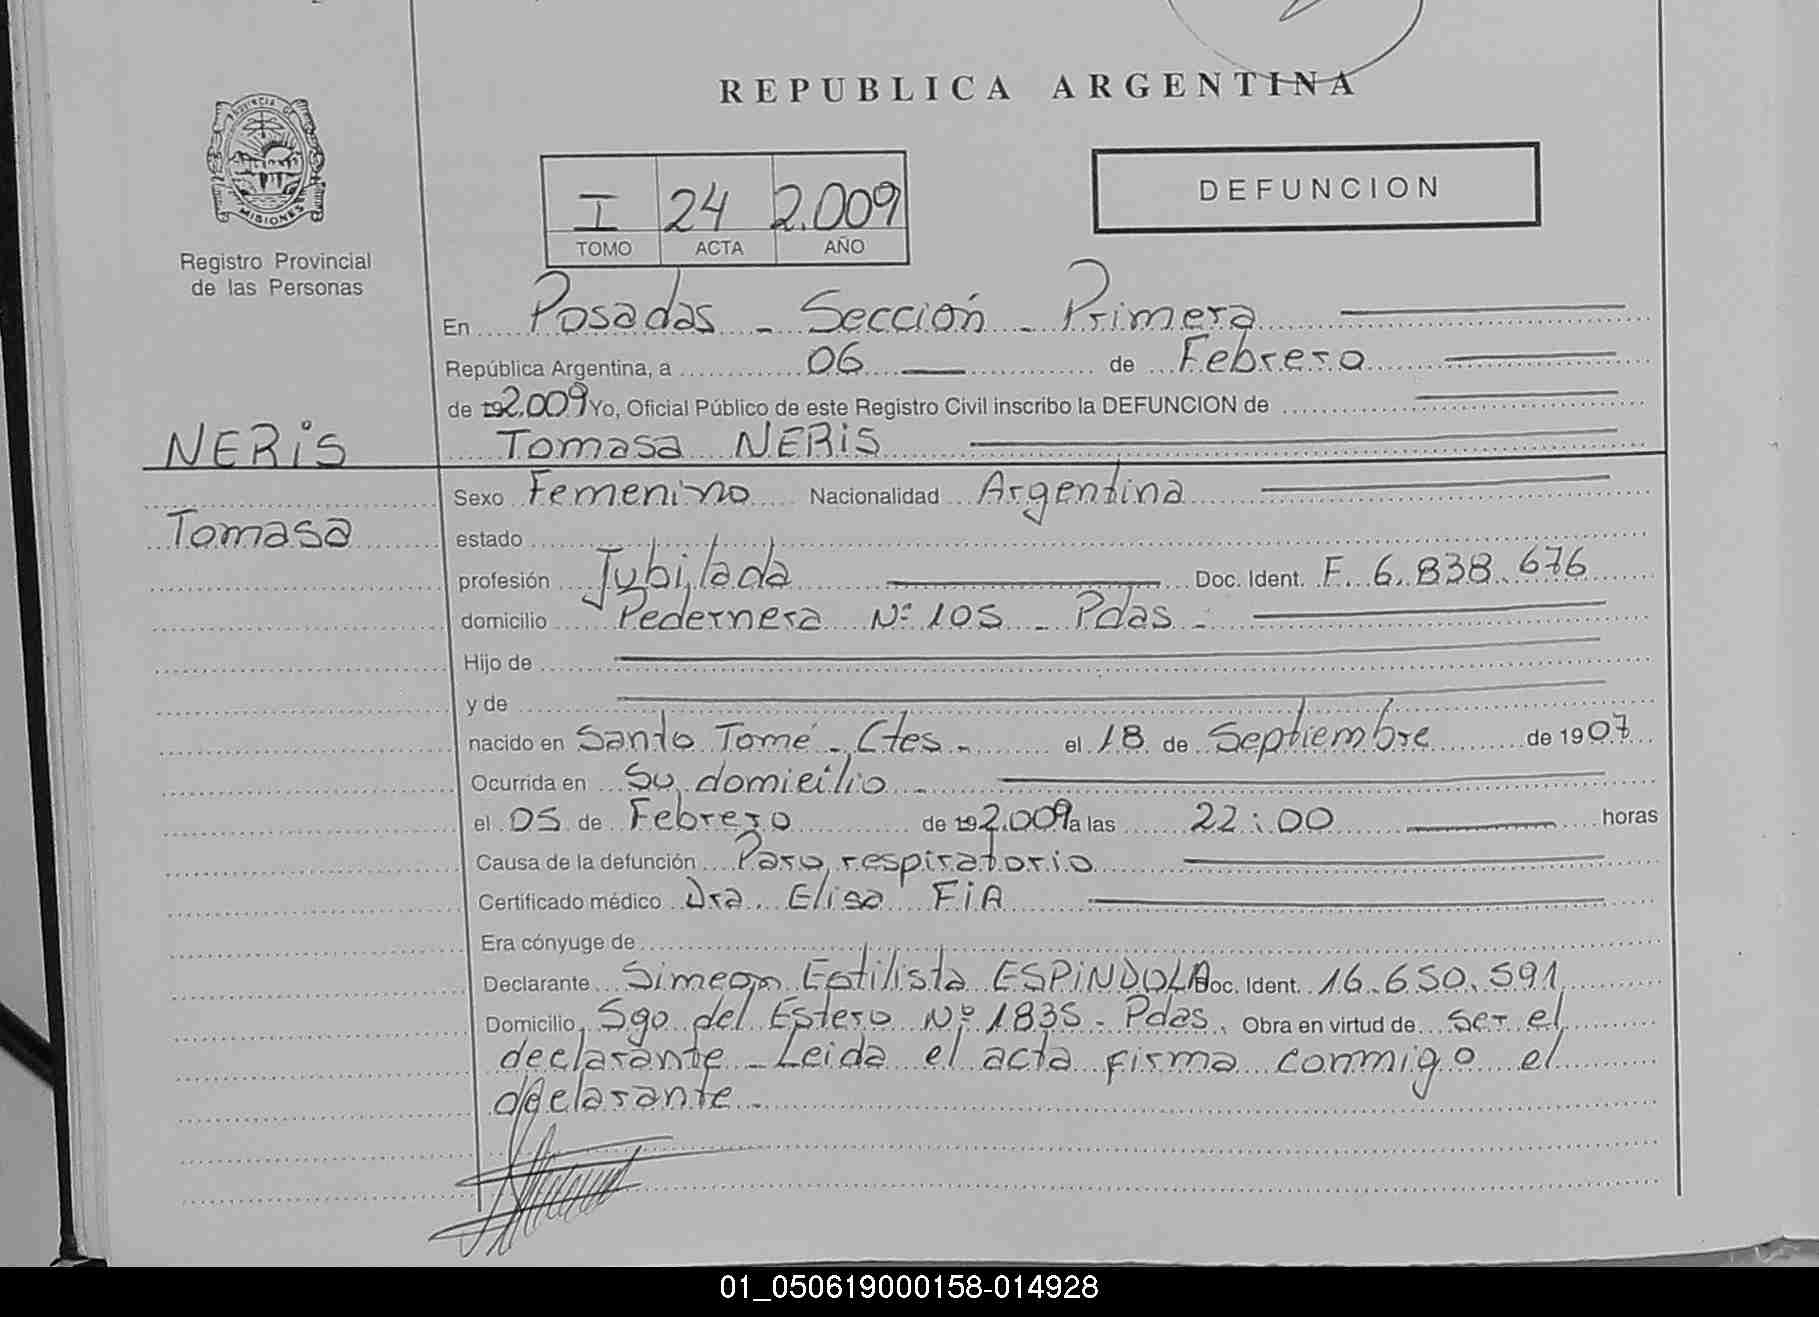 REPUBLICA ARGENTINA
PROVINCIA DE
MISIONES
Registro Provincial
de las Personas
I 24 2.009
TOMO ACTA AÑO
DEFUNCION
En Posadas - Sección - Primera
República Argentina, a 06 de Febrero
de 192.009 Yo, Oficial Público de este Registro Civil inscribo la DEFUNCION de
NERiS
Tomasa NERiS
Tomasa
Sexo Femenino Nacionalidad Argentina
estado
profesión Jubilada Doc. Ident. F. 6.838.676
domicilio Pedernera Nº 105 - Pdas -
Hijo de
y de
nacido en Santo Tomé - Ctes - el 18 de Septiembre de 1907
Ocurrida en Su domicilio -
el 05 de Febrero de 192.009 a las 22:00 horas
Causa de la defunción Paro respiratorio
Certificado médico Dra. Elisa FiA
Era cónyuge de
Declarante Simeon Estilista ESPiNDOLA Doc. Ident. 16.650.591
Domicilio Sgo del Estero Nº 1835 - Pdas. Obra en virtud de ser el
declarante - Leida el acta firma conmigo el
declarante -
01_050619000158-014928